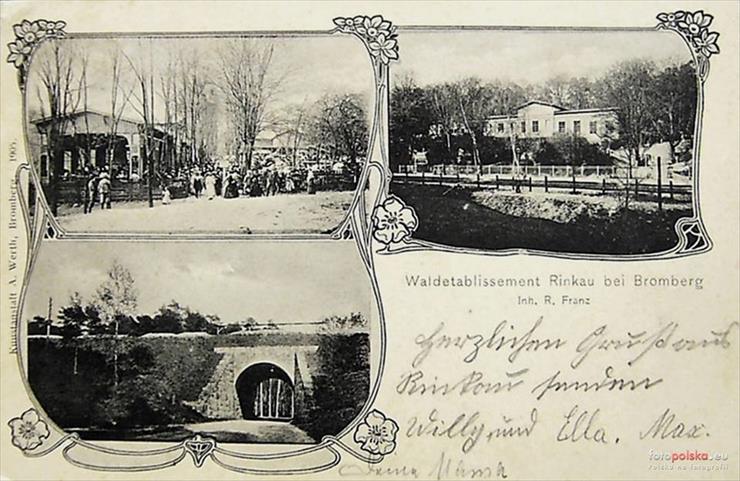 Kunstanstalt A. Werth, Bromberg 1905.
Waldetablissement Rinkau bei Bromberg
Inh. R. Franz
Herzlichen Gruß aus
Rinkau senden
Willy und Ella. Max.
fotopolska.eu
Polska na fotografii